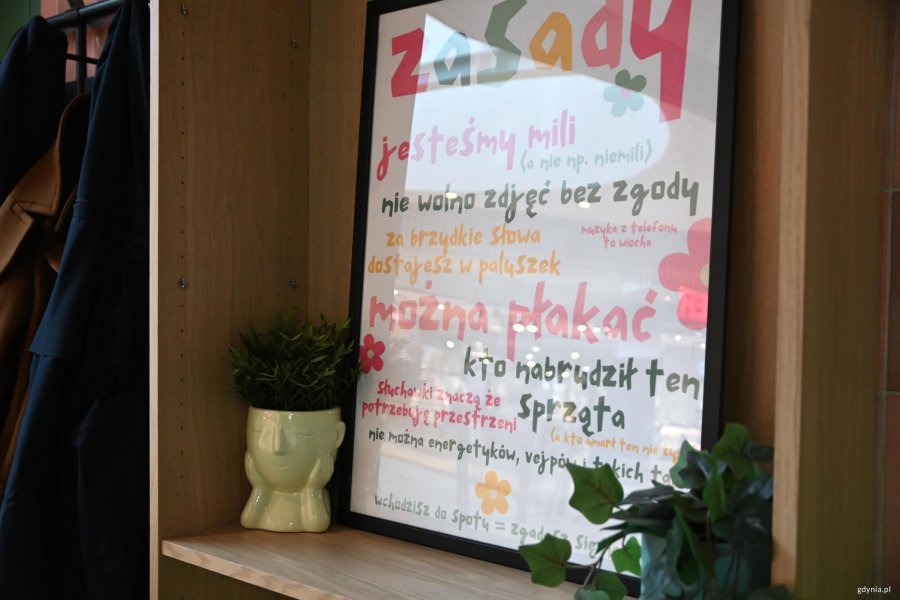 zasady
jesteśmy mili
(a nie np. niemili)
nie wolno zdjęć bez zgody
za brzydkie słowa
dostajesz w paluszek
muzyka z telefonu
to wiocha
można płakać
kto nabrudził ten
sprząta
słuchawki znaczą że
potrzebuję przestrzeni
(a kto umarł ten nie
nie można energetyków, vejpów i takich
wchodzisz do spotu = zgadzasz się
gdynia.pl